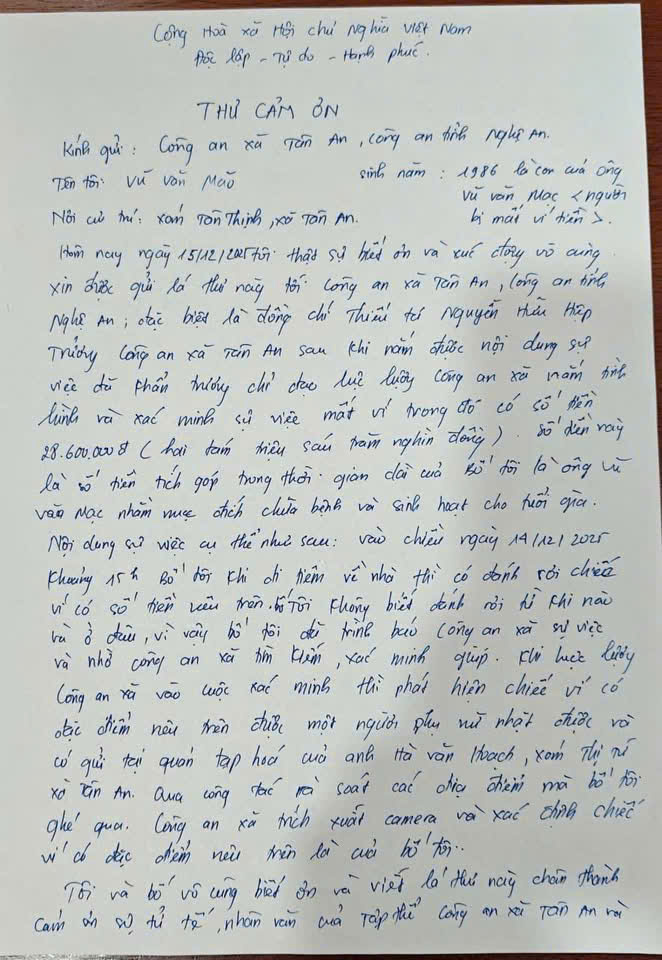 Cộng Hoà xã Hội chủ Nghĩa Việt Nam
Độc lập - Tự do - Hạnh phúc.
THƯ CẢM ƠN
Kính gửi: Công an xã Tân An, Công an tỉnh Nghệ An.
Tên tôi: Vũ Văn Mão sinh năm: 1986 là con của ông
Vũ Văn Mạc <người
Nơi cư trú: xóm Tân Thịnh, xã Tân An. bị mất ví tiền>.
Hôm nay ngày 15/12/2025 tôi thật sự biết ơn và xúc động vô cùng
xin được gửi lá thư này tới Công an xã Tân An, Công an tỉnh
Nghệ An; đặc biệt là đồng chí Thiếu tá Nguyễn Hữu Hiệp
Trưởng Công an xã Tân An sau khi nắm được nội dung sự
việc đã khẩn trương chỉ đạo lực lượng Công an xã nắm tình
hình và xác minh sự việc mất ví trong đó có số tiền
28.600.000đ (hai tám triệu sáu trăm nghìn đồng). Số tiền này
là số tiền tích góp trong thời gian dài của Bố tôi là ông Vũ
Văn Mạc nhằm mục đích chữa bệnh và sinh hoạt cho tuổi già.
Nội dung sự việc cụ thể như sau: vào chiều ngày 14/12/2025
Khoảng 15h Bố tôi khi đi tiêm về nhà thì có đánh rơi chiếc
ví có số tiền nêu trên. bố tôi không biết đánh rơi từ khi nào
và ở đâu, vì vậy bố tôi đã trình báo Công an xã sự việc
và nhờ công an xã tìm kiếm, xác minh giúp. Khi lực lượng
Công an xã vào cuộc xác minh thì phát hiện chiếc ví có
đặc điểm nêu trên được một người phụ nữ nhặt được và
có gửi tại quán tạp hoá của anh Hà Văn Hoạch, xóm Thị Tứ
xã Tân An. Qua công tác rà soát các địa điểm mà bố tôi
ghé qua. Công an xã trích xuất camera và xác định chiếc
ví có đặc điểm nêu trên là của bố tôi.
Tôi và bố vô cùng biết ơn và viết lá thư này chân thành
cảm ơn sự tử tế, nhân văn của Tập thể Công an xã Tân An và